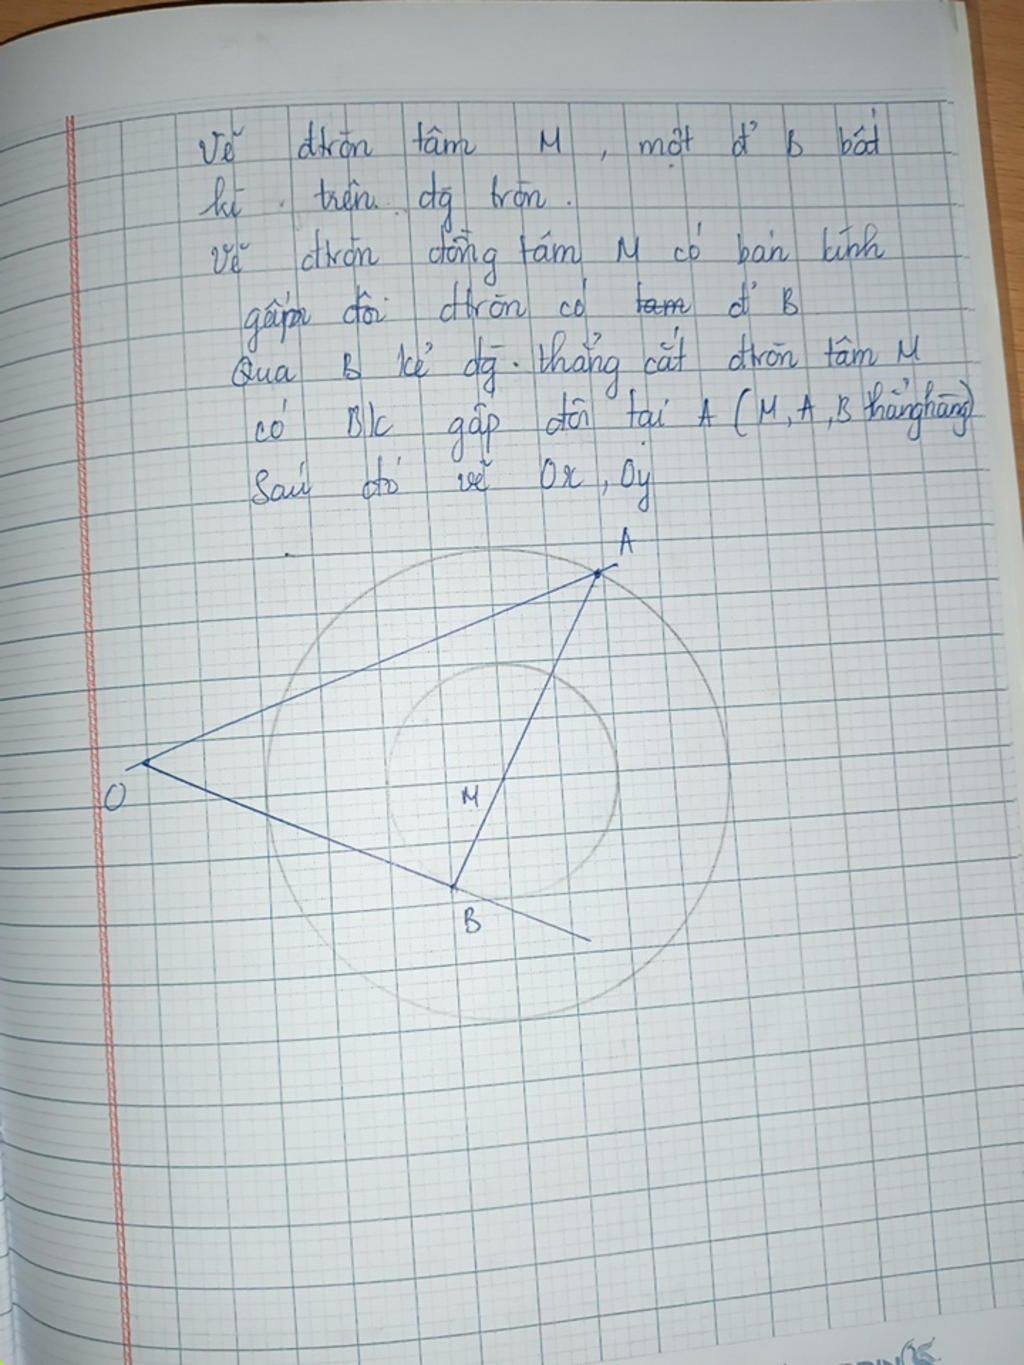 Vẽ đtròn tâm M, một đ' B bất
kì trên đg tròn.
Vẽ đtròn đồng tâm M có bán kính
gấp đôi đtròn có tam đ' B
Qua B kẻ đg. thẳng cắt đtròn tâm M
có B/k gấp đôi tại A (M, A, B thẳng hàng)
Sau đó vẽ Ox, Oy
A
O
M
B